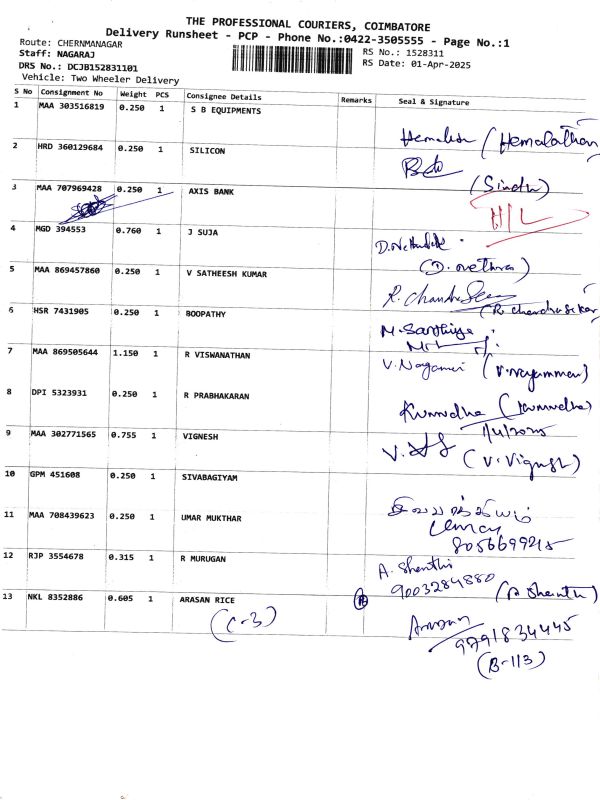 THE PROFESSIONAL COURIERS, COIMBATORE
Delivery Runsheet - PCP - Phone No.:0422-3505555 - Page No.:1
Route: CHERNMANAGAR
RS No.: 1528311
Staff: NAGARAJ
RS Date: 01-Apr-2025
DRS No.: DCJB152831101
Vehicle: Two Wheeler Delivery
S No Consignment No Weight PCS Consignee Details Remarks Seal & Signature
1 MAA 303516819 0.250 1 S B EQUIPMENTS
(Hemalathan
2 HRD 360129684 0.250 1 SILICON
(Sindh)
3 MAA 707969428 0.250 1 AXIS BANK
H/L
4 MGD 394553 0.760 1 J SUJA
(D. Nethra)
5 MAA 869457860 0.250 1 V SATHEESH KUMAR
R. Chandra
(R. chandrasekar
6 HSR 7431905 0.250 1 BOOPATHY
M. Sarthiya
7 MAA 869505644 1.150 1 R VISWANATHAN
V. Nagamei (V. nayamman)
8 DPI 5323931 0.250 1 R PRABHAKARAN
Kumudha (Kumudha)
1/4/2025
9 MAA 302771565 0.755 1 VIGNESH
(V. Vignesh)
10 GPM 451608 0.250 1 SIVABAGIYAM
11 MAA 708439623 0.250 1 UMAR MUKTHAR
Umar
8056699215
12 RJP 3554678 0.315 1 R MURUGAN
A. Shanthi
9003284880
(A Shanthi)
13 NKL 8352886 0.605 1 ARASAN RICE
(C-3)
9791834445
(B-113)